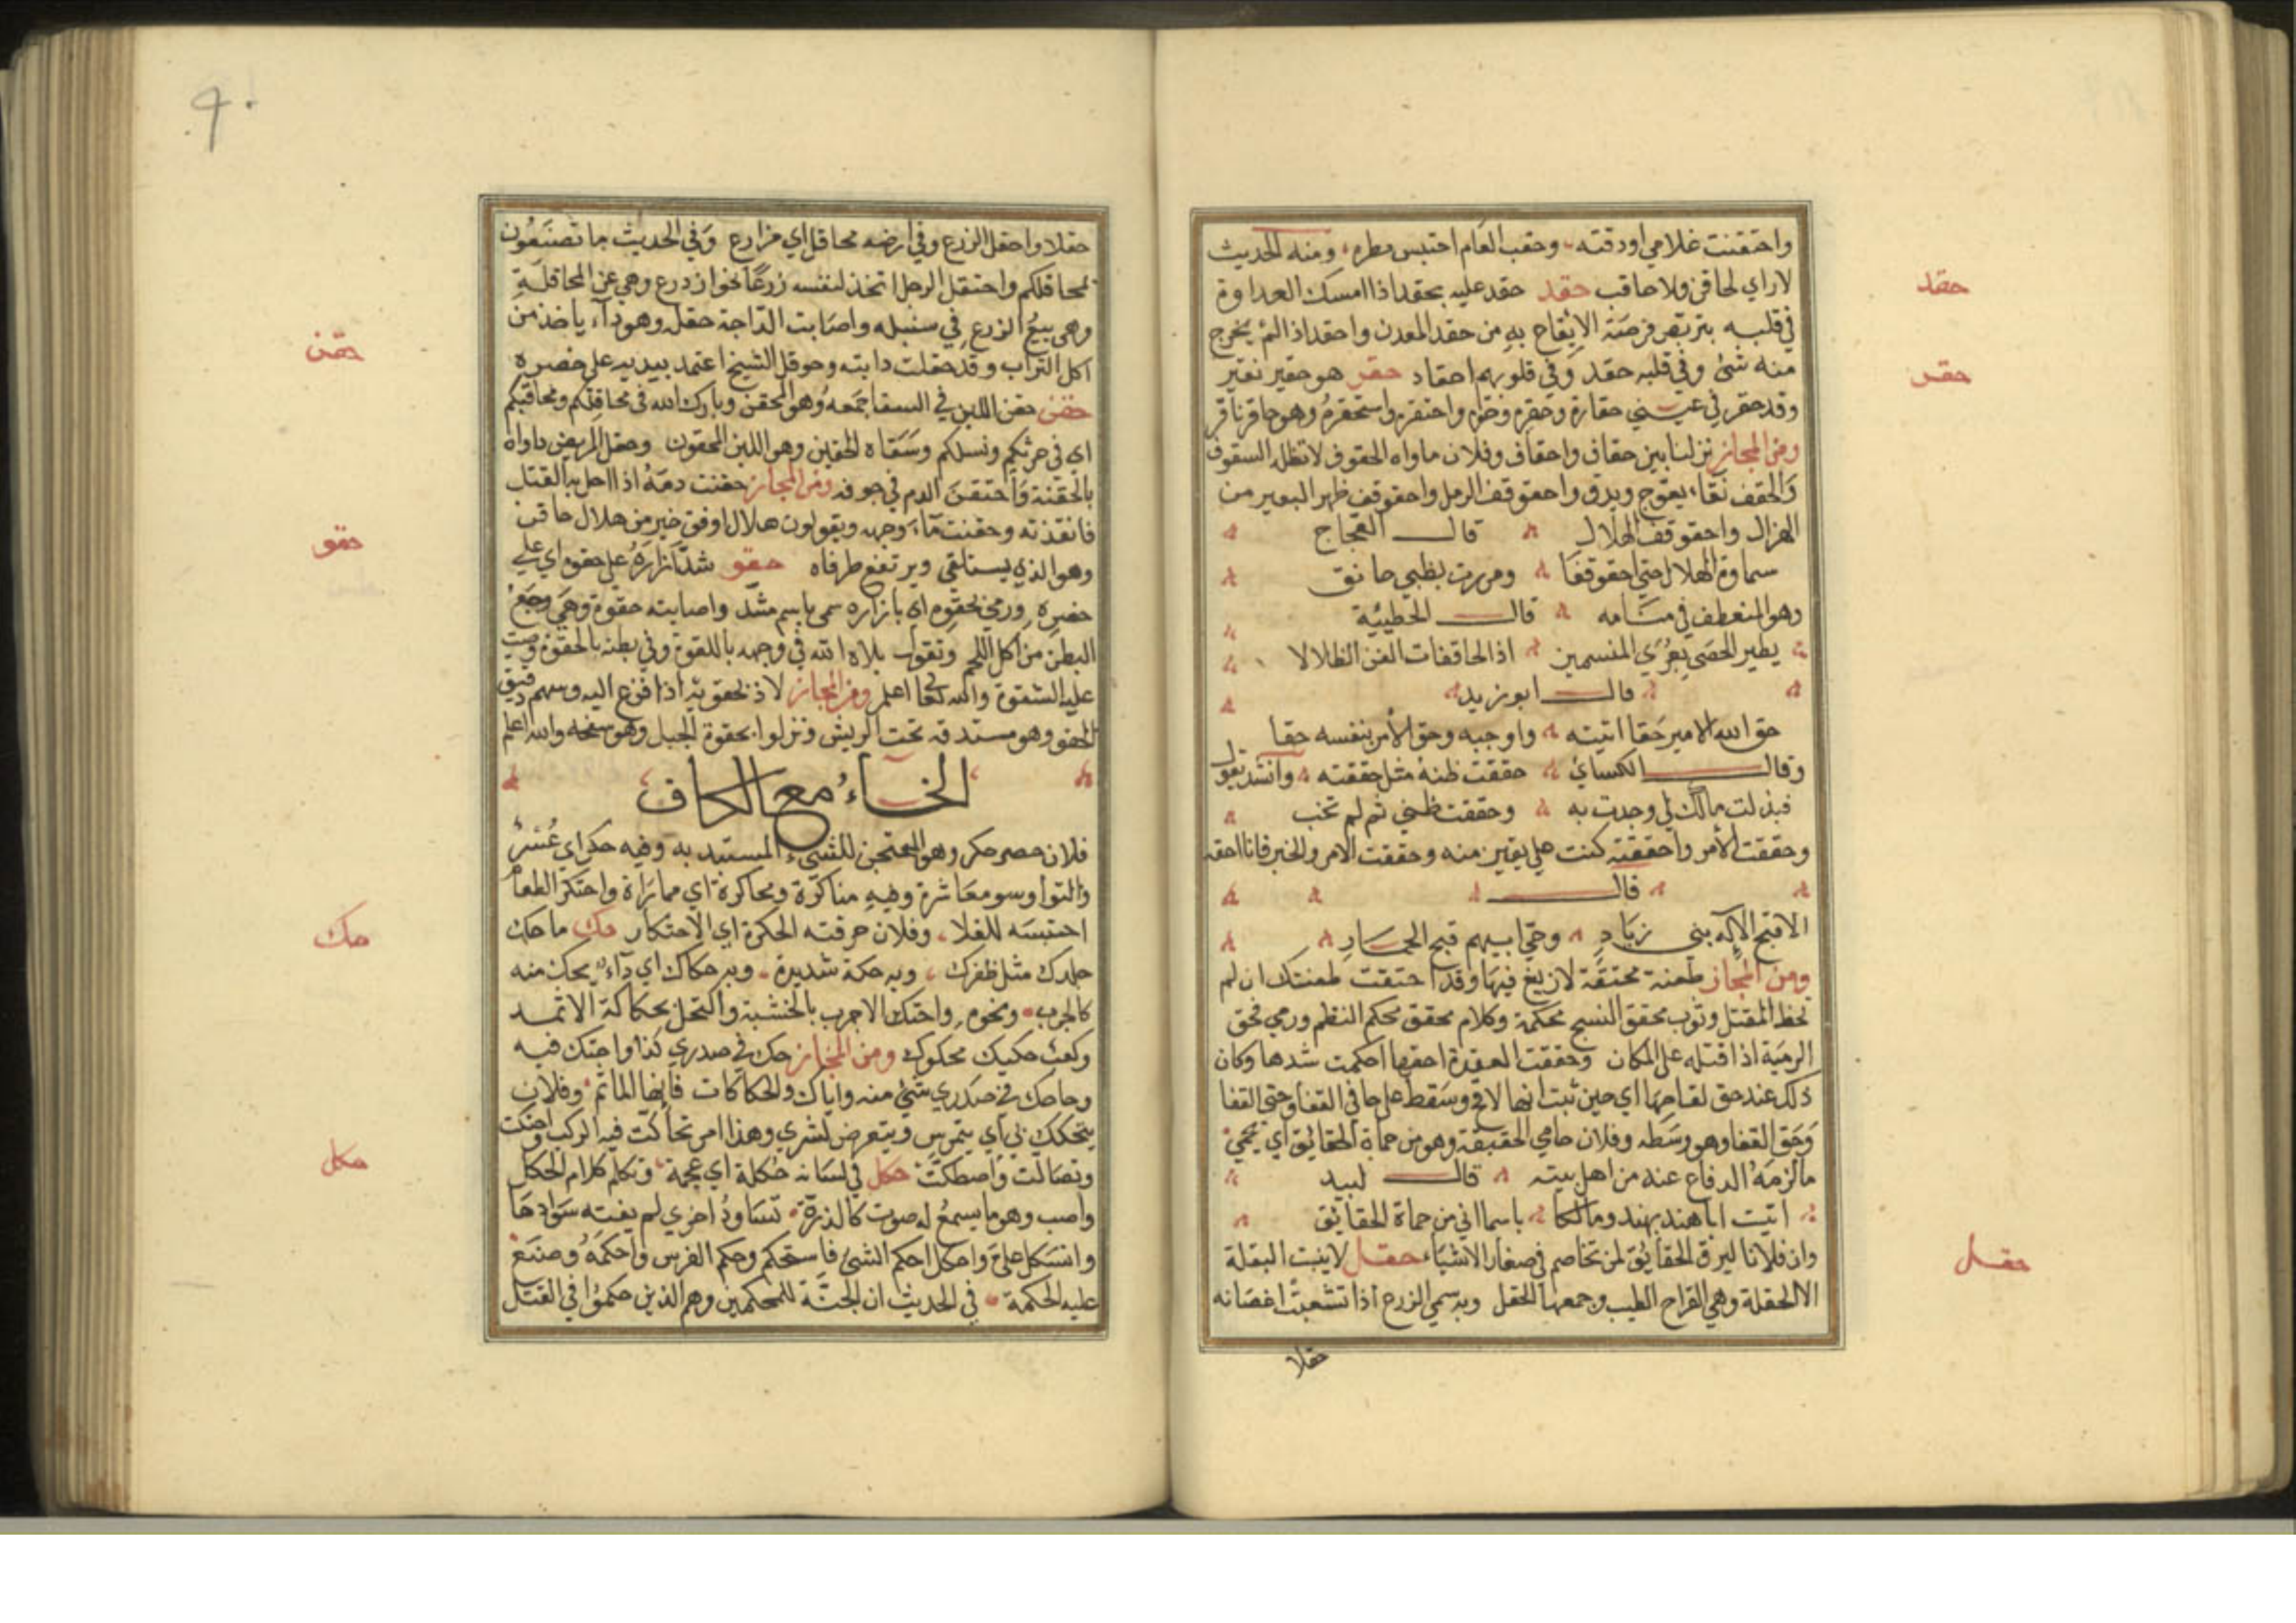 واحتقنت غلامي اودقته وحقب العام احتبس مطره ومنه الحديث
لاراي لحاقن ولا حاقب حقد حقد عليه بحقد اذا امسك العداوة
حقد
في قلبه يتربص فرصة الايقاع به من حقد المعدن واحقد اذا لم يخرج
منه شئ وفي قلبه حقد وفي قلوبهم احقاد حقر هو حقير نقير
حقر
وقد حقر في عيني حقارة وحقره وحقره واحتقره واستحقره وهو حاقر ناقر
ومن المجاز نزلنا بين حقاف واحقاف وفلان ماواه الحقوف لا تظله السقوف
والحقف نقا يعوج ويدق واحقوقف الرمل واحقوقف ظهر البعير من
الهزال واحقوقف الهلال قال العجاج
سماوة الهلال حتى احقوقفا ومررت بظبي حانق
وهو المنعطف في منامه قال الحطيئة
يطير الحصى بعرى المنسمين اذا الحاقفات الفن الظلالا
قال ابو زيد
حق الله الامير حقا اتيته واوجبه وحق الامر بنفسه حقا
وقال الكسائي حققت ظنه مثل حققته وانشد يقول
فبذلت مالك لي وجدت به وحققت ظني ثم لم تخب
وحققت الامر واحققته كنت على يقين منه وحققت الامر والخبر فانا احقه
قال
الا قبح الاله بني زياد وحي ابيهم قبح الحمار
ومن المجاز طعنة محتقة لا زيغ فيها وقد احتقت طعنتك ان لم
تخط المقتل وثوب محقق النسج محكمة وكلام محقق محكم النظم ورمي فحق
الرمية اذا قتله على المكان وحققت العقدة احقها احكمت شدها وكان
ذلك عند حق لقاحها اي حين ثبت انها لاقح وسقط على حاق القفا وحق القفا
وحق القفا وهو وسطه وفلان حامي الحقيقة وهو من حماة الحقايق اي يحمي
ما لزمه الدفاع عنه من اهل بيته قال لبيد
اتيت ابا هند بهند ومالكا باسما اني من حماة الحقايق
وان فلانا لبرق الحقايق لمن تخاصم في صغار الاشياء حقل لا ينبت البقلة
حقل
الا الحقلة وهي القراح الطيب وجمعها الحقل وبه سمي الزرع اذا تشعبت اغصانه
حقلا
٩٠
حقلا واحقل الزرع وفي ارضه محاقل اي مزارع وفي الحديث ما تصنعون
بمحاقلكم واحتقل الرجل اتخذ لنفسه زرعا نحو ازدرع وهي عن المحاقلة
وهي بيع الزرع في سنبله واصابت الدابة حقلة وهو داء ياخذ من
اكل التراب وقد حقلت دابته وحوقل الشيخ اعتمد بيديه على خصره
حقن
حقن حقن اللبن في السقا جمعه وهو المحقن وبارك الله في محاقلكم ومحاقنكم
اي في حرثكم ونسلكم وسقاه الحقين وهو اللبن المحقون وحقن المريض داواه
بالحقنة واحتقن الدم في جوفه ومن المجاز حقنت دمه اذا احل به القتل
فانقذته وحقنت ماء وجهه ويقولون هلال اوفق خير من هلال حاقن
وهو الذي يستلقي ويرتفع طرفاه حقو شد ازاره على حقوه اي على
حقو
خصره ورمي بحقوه اي بازاره سمي باسم مشد واصابته حقوة وهي وجع
البطن من اكل اللحم وتقول بلاه الله في وجهه باللقوة وفي بطنه بالحقوة وصبت
عليه الشقوة والله تعا اعلم ومن المجاز لاذ بحقويه اذا فزع اليه وسهم دقيق
الحقو وهو مستدقه تحت الريش ونزلوا بحقوة الجبل وهو سفحه والله اعلم
الحاء مع الكاف
فلان حصر حكر وهو المحتجن للشيء المستبد به وفيه حكر اي عسر
والتوا وسو معاشرة وفيه مناكرة ومحاكرة اي مماراة واحتكر الطعام
احتبسه للغلا وفلان حرفته الحكرة اي الاحتكار حك ما حك
حك
جلدك مثل ظفرك وبه حكة شديدة وبه حكاك اي داء يحك منه
كالجرب ونحوه واحتك الاجرب بالخشبة واكتحل بحكاكة الاثمد
وكعب حكيك محكوك ومن المجاز حك في صدري كذا واحتك فيه
وحاحك في صدري شئ منه واياك والحكاكات فانها الماثم وفلان
يتحكك بي اي يتمرس ويتعرض لشري وهذا امر تحاكت فيه الركب واحتكت
وتصالت واصطكت حكل في لسانه حكلة اي عجمة وتكلم كلام الحكل
حكل
واصب وهو ما يسمع له صوت كالذرة تساود اخرى لم يفته سوادها
وانسكل علي واحكل احكم الشئ فاستحكم وحكم الفرس واحكمه وصنع
عليه الحكمة في الحديث ان الجنة للمحكمين وهم الذين حكموا في القتل